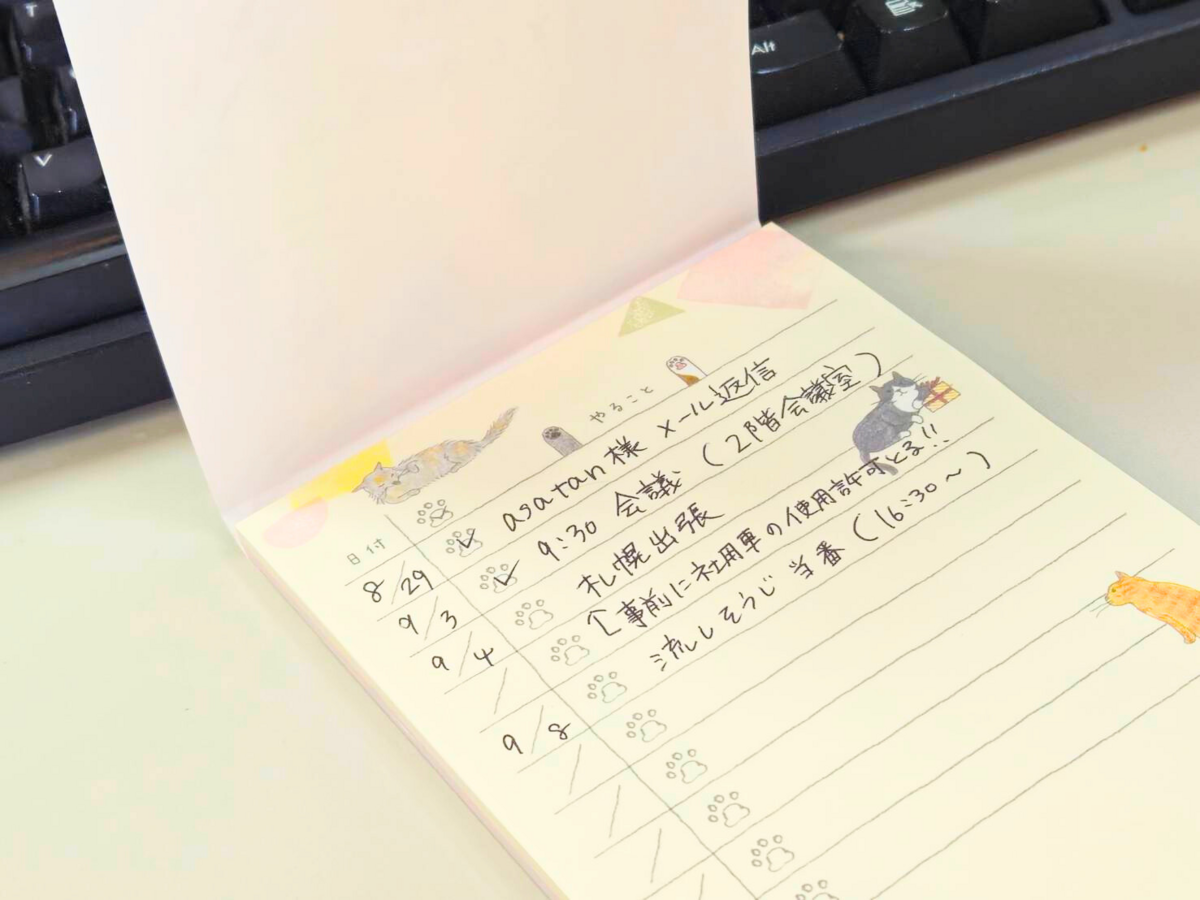 T
V
Alt
日付 やること
8/29 asatan様 メール返信
9/3 9:30 会議 (2階会議室)
9/4 札幌出張
/ ↑事前に社用車の使用許可とる!!
9/8 流しそうじ当番 (16:30〜)